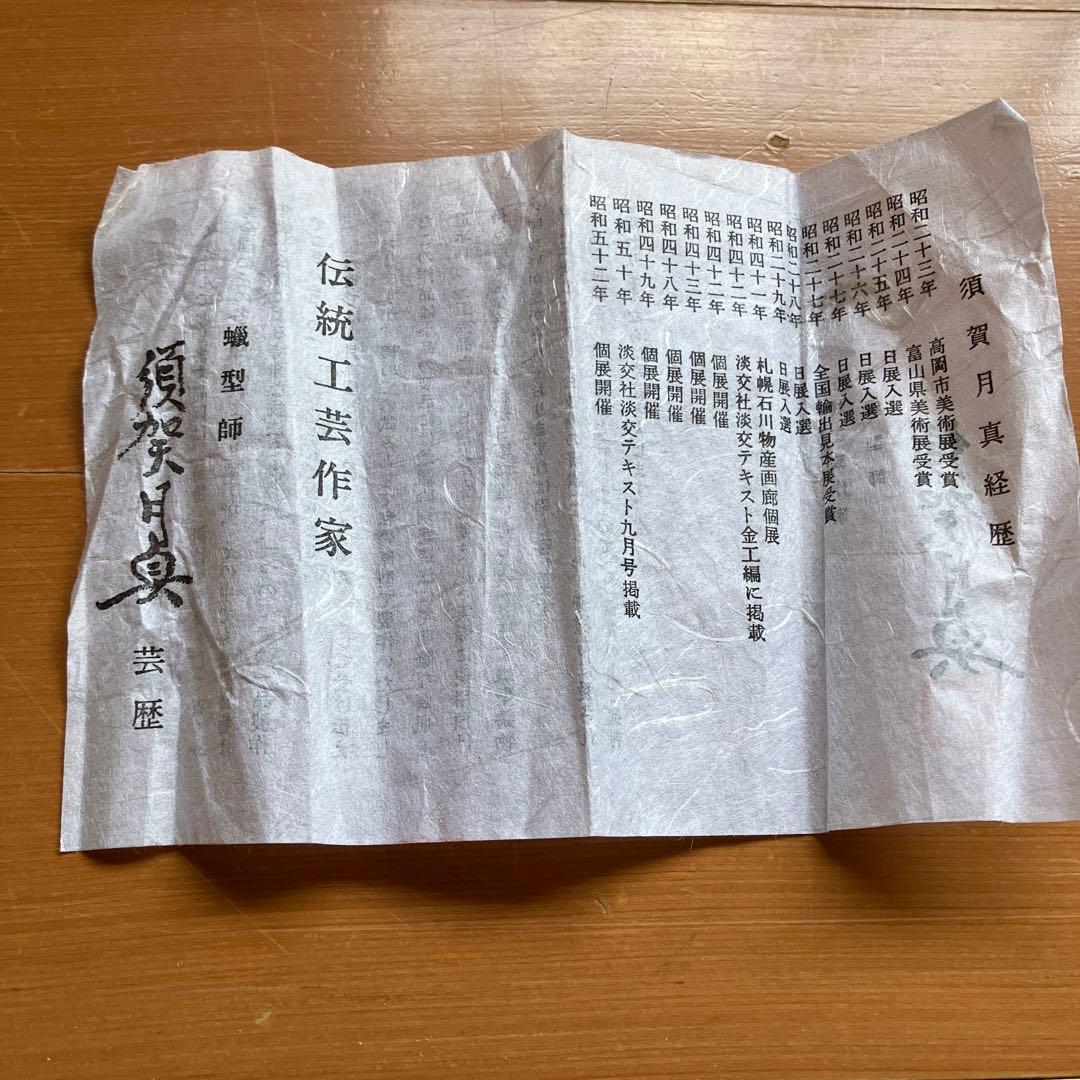 須賀月真経歴
昭和二十三年 高岡市美術展受賞
昭和二十四年 富山県美術展受賞
昭和二十五年 日展入選
昭和二十六年 日展入選
昭和二十七年 日展入選
昭和二十七年 全国輸出見本展受賞
昭和二十八年 日展入選
昭和二十九年 日展入選
昭和四十一年 札幌石川物産画廊個展
昭和四十二年 淡交社淡交テキスト金工編に掲載
昭和四十二年 個展開催
昭和四十三年 個展開催
昭和四十八年 個展開催
昭和四十九年 個展開催
昭和五十年 淡交社淡交テキスト九月号掲載
昭和五十二年 個展開催
伝統工芸作家
蠟型師
須賀月真 芸歴